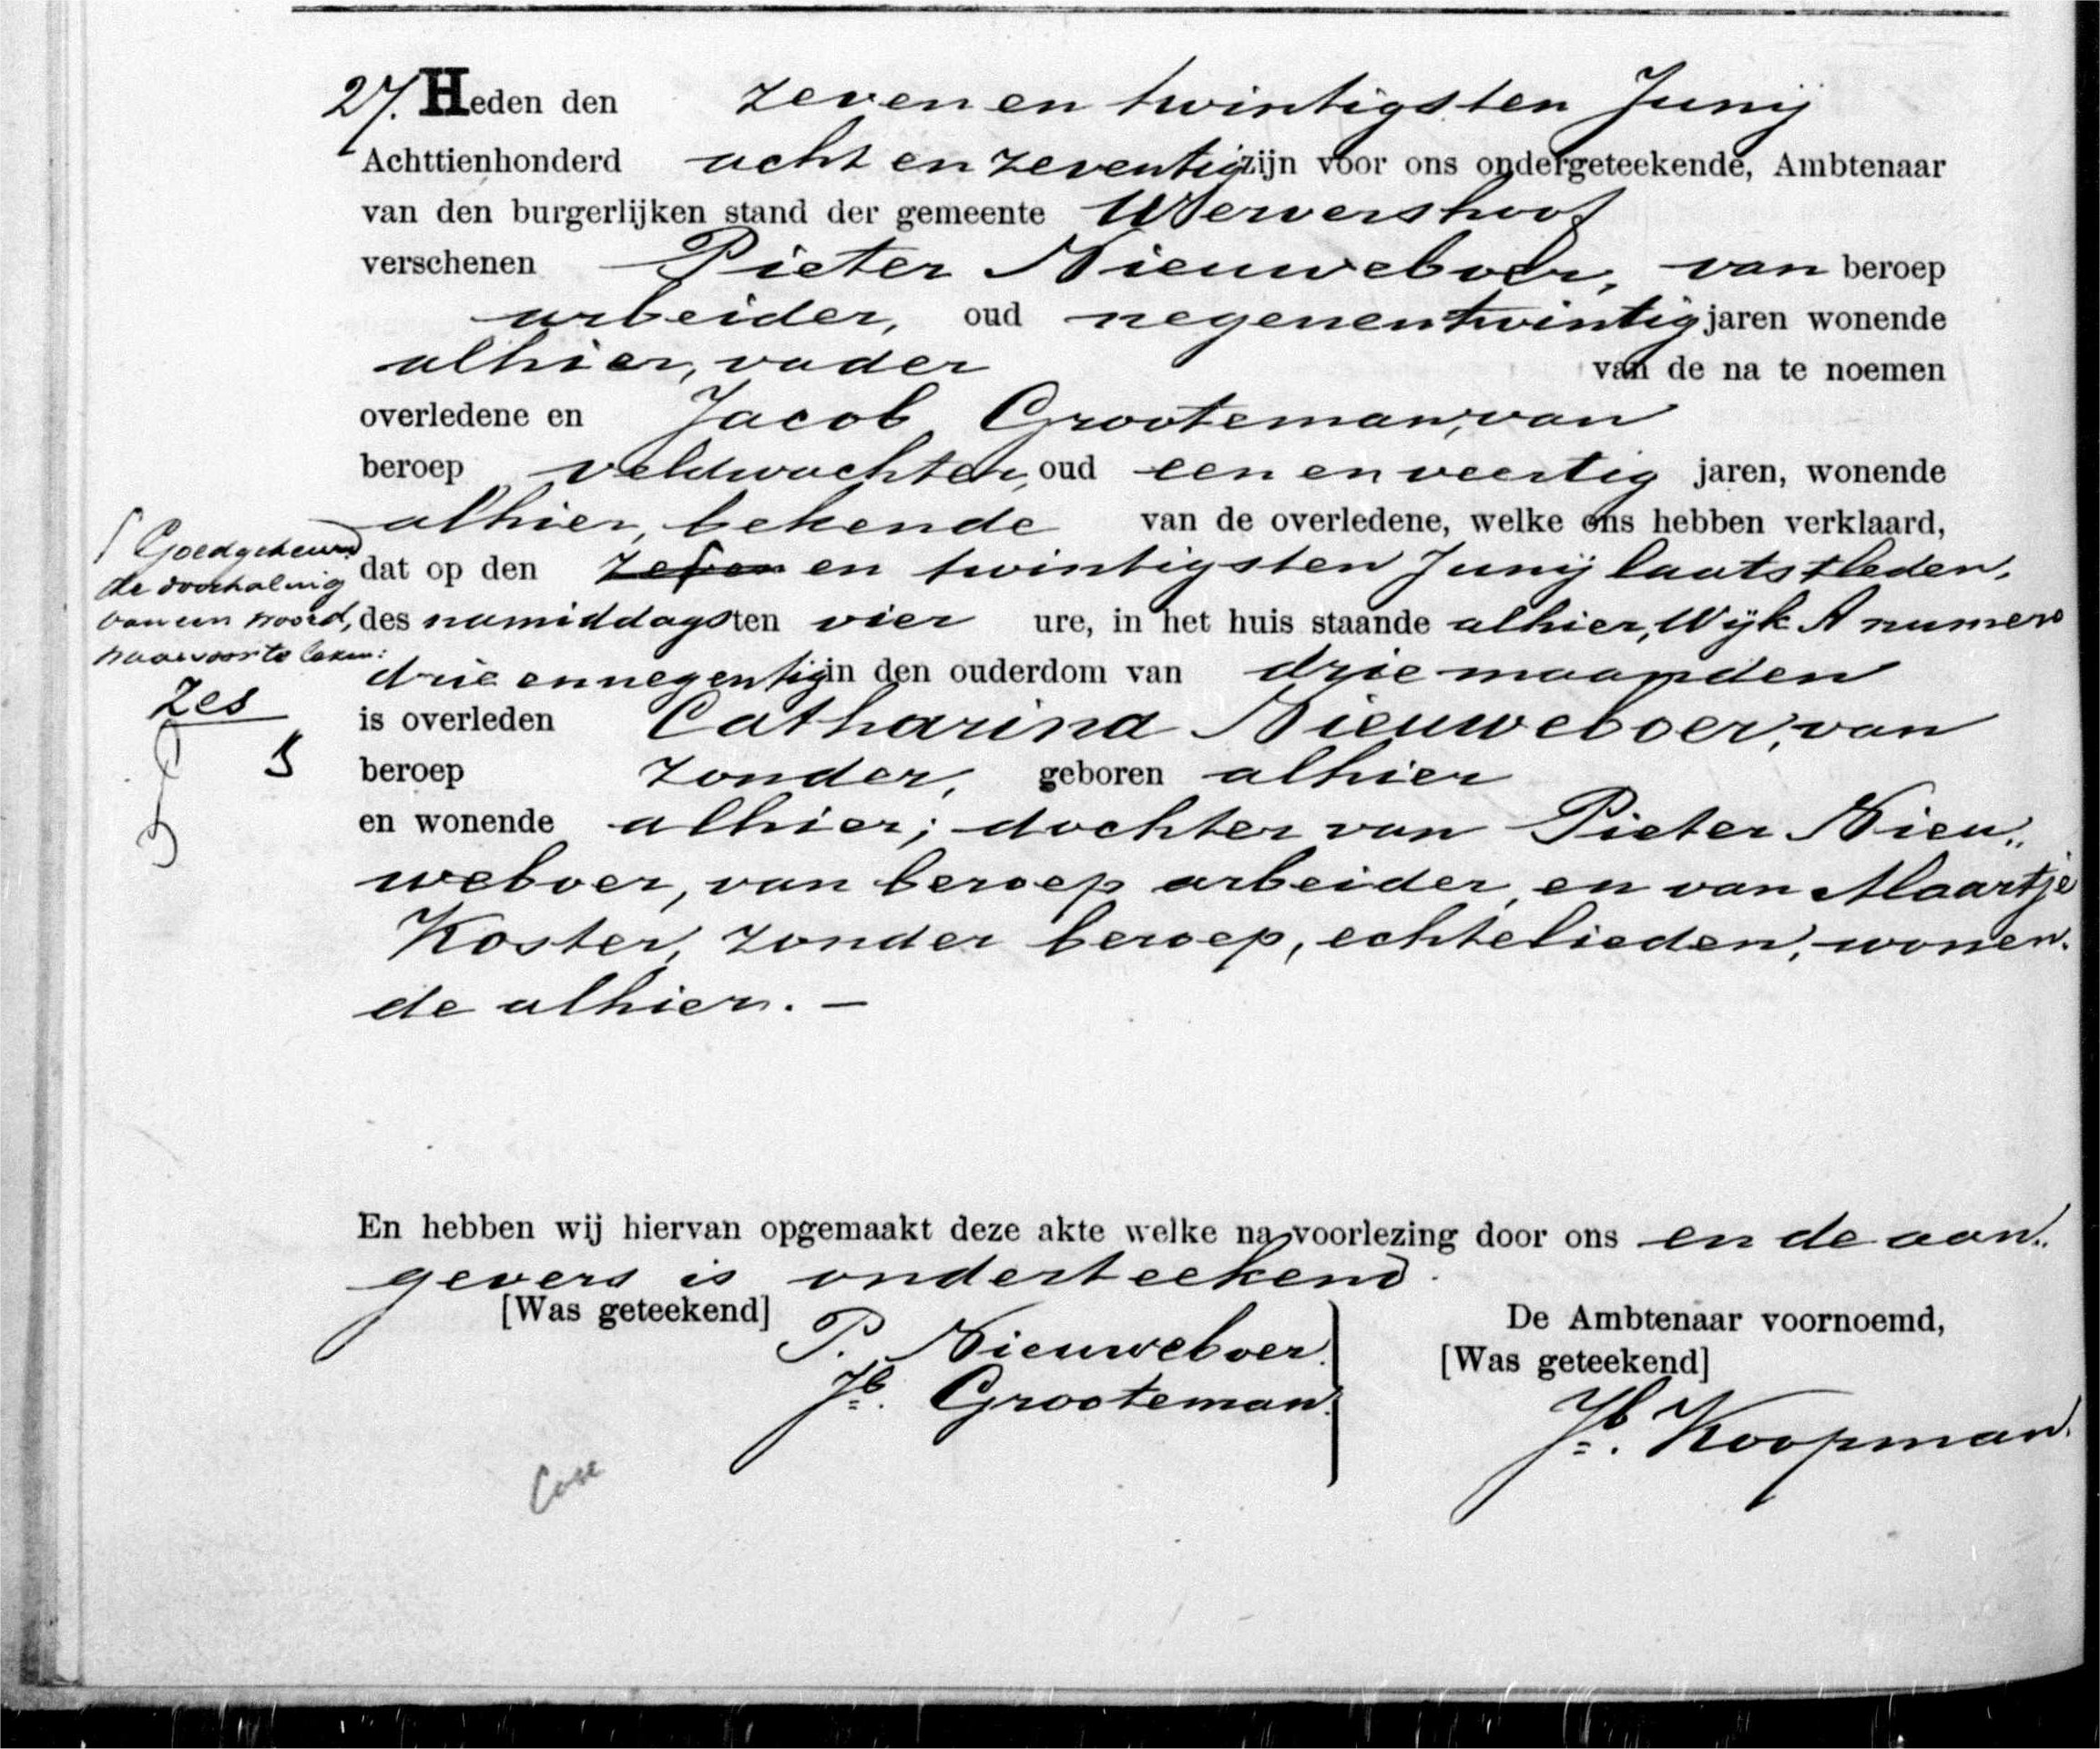 27. Heden den zeven en twintigsten Junij
Achttienhonderd acht en zeventig zijn voor ons ondergeteekende, Ambtenaar
van den burgerlijken stand der gemeente Wervershoof
verschenen Pieter Nieuweboer, van beroep
arbeider, oud negenentwintig jaren wonende
alhier, vader van de na te noemen
overledene en Jacob Grooteman, van
beroep veldwachter, oud een en veertig jaren, wonende
alhier, bekende van de overledene, welke ons hebben verklaard,
dat op den zeven en twintigsten Junij laatstleden,
des namiddags ten vier ure, in het huis staande alhier, Wijk A numero
drie en negentig in den ouderdom van drie maanden
is overleden Catharina Nieuweboer, van
beroep zonder, geboren alhier
en wonende alhier; dochter van Pieter Nieu„
weboer, van beroep arbeider, en van Maartje
Koster, zonder beroep, echtelieden, wonen-
de alhier. —
Goedgekeurd
de doorhaling
van een woord,
waarvoor te lezen:
zes
En hebben wij hiervan opgemaakt deze akte welke na voorlezing door ons en de aan„
gevers is onderteekend.
[Was geteekend] P. Nieuweboer.
Jb. Grooteman.
De Ambtenaar voornoemd,
[Was geteekend]
Jb. Koopman.